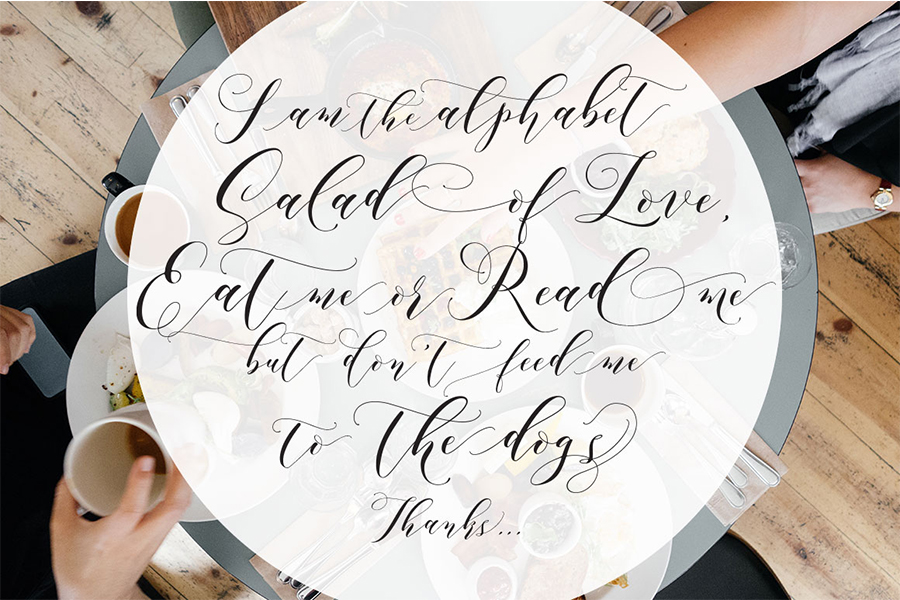 I am the alphabet
Salad of Love,
Eat me or Read me
but don't feed me
to the dogs
Thanks...